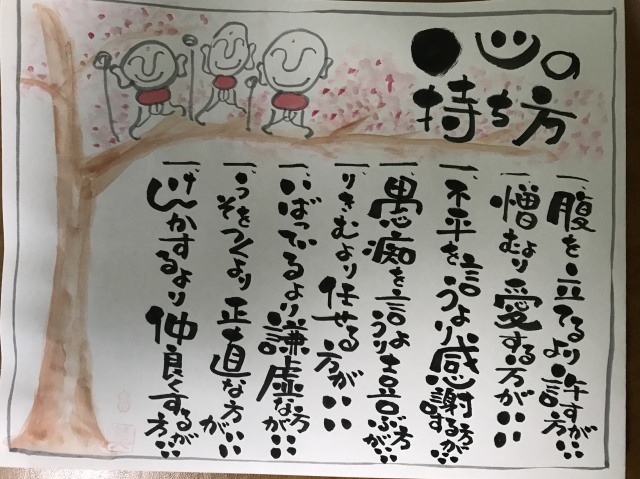 ●心の
持ち方
一、腹を立てるより許す方がいい
一、憎むより愛する方がいい
一、不平を言うより感謝する方がいい
一、愚痴を言うより喜ぶ方がいい
一、りきむより任せる方がいい
一、いばっているより謙虚な方がいい
一、うそをつくより正直な方がいい
一、けんかするより仲良くする方がいい